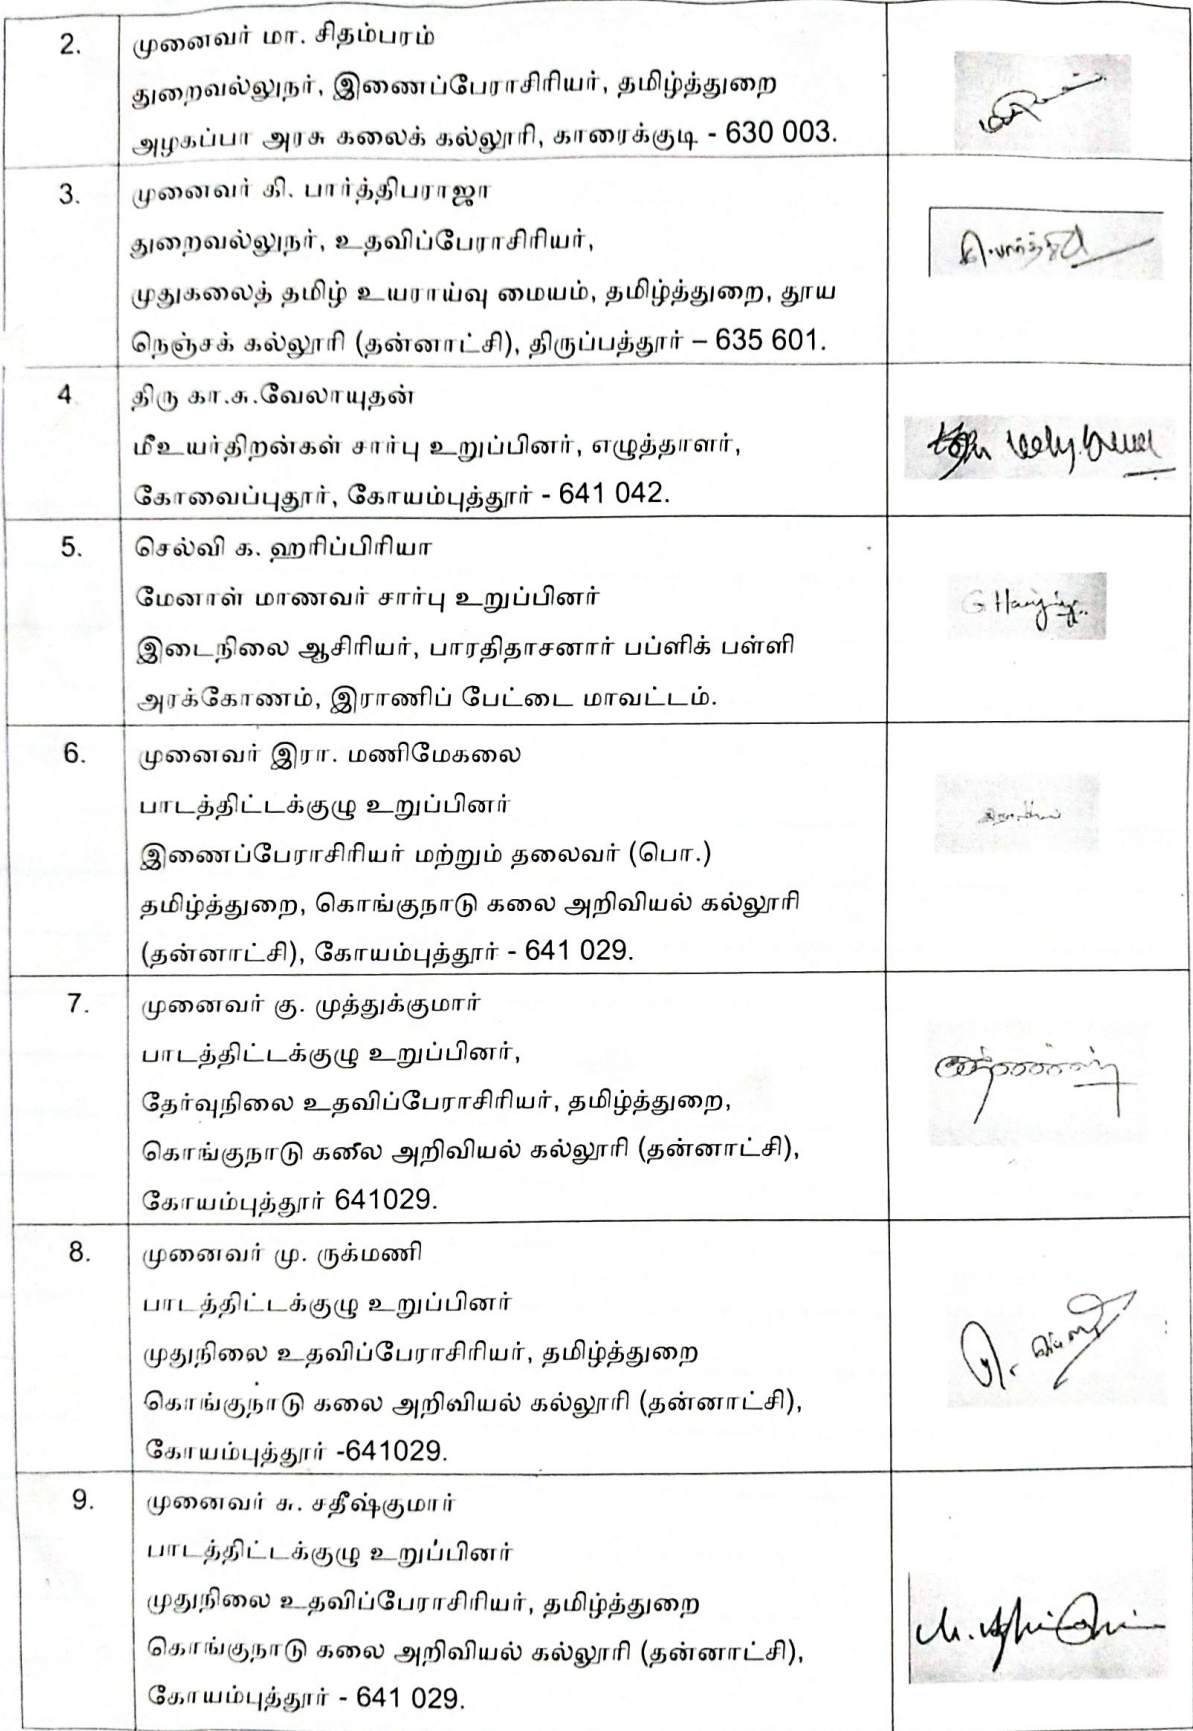 2.
முனைவர் மா. சிதம்பரம்
துறைவல்லுநர், இணைப்பேராசிரியர், தமிழ்த்துறை
அழகப்பா அரசு கலைக் கல்லூரி, காரைக்குடி - 630 003.
3.
முனைவர் கி. பார்த்திபராஜா
துறைவல்லுநர், உதவிப்பேராசிரியர்,
முதுகலைத் தமிழ் உயராய்வு மையம், தமிழ்த்துறை, தூய
நெஞ்சக் கல்லூரி (தன்னாட்சி), திருப்பத்தூர் – 635 601.
4
திரு கா.சு.வேலாயுதன்
மீஉயர்திறன்கள் சார்பு உறுப்பினர், எழுத்தாளர்,
கோவைப்புதூர், கோயம்புத்தூர் - 641 042.
5.
செல்வி க. ஹரிப்பிரியா
மேனாள் மாணவர் சார்பு உறுப்பினர்
இடைநிலை ஆசிரியர், பாரதிதாசனார் பப்ளிக் பள்ளி
அரக்கோணம், இராணிப் பேட்டை மாவட்டம்.
6.
முனைவர் இரா. மணிமேகலை
பாடத்திட்டக்குழு உறுப்பினர்
இணைப்பேராசிரியர் மற்றும் தலைவர் (பொ.)
தமிழ்த்துறை, கொங்குநாடு கலை அறிவியல் கல்லூரி
(தன்னாட்சி), கோயம்புத்தூர் - 641 029.
7.
முனைவர் கு. முத்துக்குமார்
பாடத்திட்டக்குழு உறுப்பினர்,
தேர்வுநிலை உதவிப்பேராசிரியர், தமிழ்த்துறை,
கொங்குநாடு கலை அறிவியல் கல்லூரி (தன்னாட்சி),
கோயம்புத்தூர் 641029.
8.
முனைவர் மு. ருக்மணி
பாடத்திட்டக்குழு உறுப்பினர்
முதுநிலை உதவிப்பேராசிரியர், தமிழ்த்துறை
கொங்குநாடு கலை அறிவியல் கல்லூரி (தன்னாட்சி),
கோயம்புத்தூர் -641029.
9.
முனைவர் சு. சதீஷ்குமார்
பாடத்திட்டக்குழு உறுப்பினர்
முதுநிலை உதவிப்பேராசிரியர், தமிழ்த்துறை
கொங்குநாடு கலை அறிவியல் கல்லூரி (தன்னாட்சி),
கோயம்புத்தூர் - 641 029.